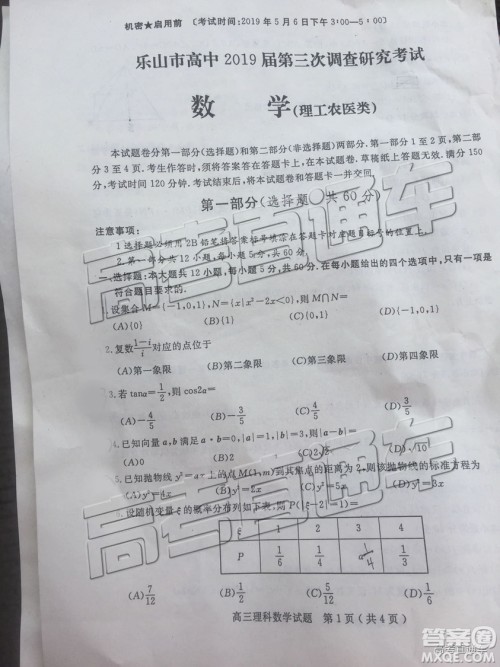 机密★启用前 〔考试时间:2019年5月6日下午3:00—5:00〕
乐山市高中2019届第三次调查研究考试
数 学(理工农医类)
本试题卷分第一部分(选择题)和第二部分(非选择题)两部分.第一部分1至2页,第二部
分3至4页.考生作答时,须将答案答在答题卡上,在本试题卷、草稿纸上答题无效.满分150
分,考试时间120分钟.考试结束后,将本试题卷和答题卡一并交回.
第一部分(选择题 共60分)
注意事项:
1.选择题必须用2B铅笔将答案标号填涂在答题卡对应题目标号的位置上.
2.第一部分共12小题,每小题5分,共60分.
一、选择题:本大题共12小题,每小题5分,共60分.在每小题给出的四个选项中,只有一项是
符合题目要求的.
1.设集合M={-1,0,1},N={x|x²-2x<0},则M∩N=
(A){0} (B){1} (C){0,1} (D){-1,0,1}
2.复数(1-i)/i对应的点位于
(A)第一象限 (B)第二象限 (C)第三象限 (D)第四象限
3.若tanα=1/2,则cos2α=
(A)-4/5 (B)-3/5 (C)4/5 (D)3/5
4.已知向量a,b满足a·b=0,|a|=1,|b|=3,则|a-b|=
(A)0 (B)2 (C)2√2 (D)√10
5.已知抛物线 上的点M(1,m)到其焦点的距离为2,则该抛物线的标准方程为
(A)y²=4x (B)y²=2x (C)y²=5x (D)y²=3x
6.设随机变量ξ的概率分布列如下表,则P(|ξ-2|=1)=
ξ 1 2 3 4
P 1/6 1/4 1/4 1/3
(A)7/12 (B)1/2 (C)5/12 (D)1/6
高三理科数学试题 第1页(共4页)
高考直通车
答案圈
MXQE.COM